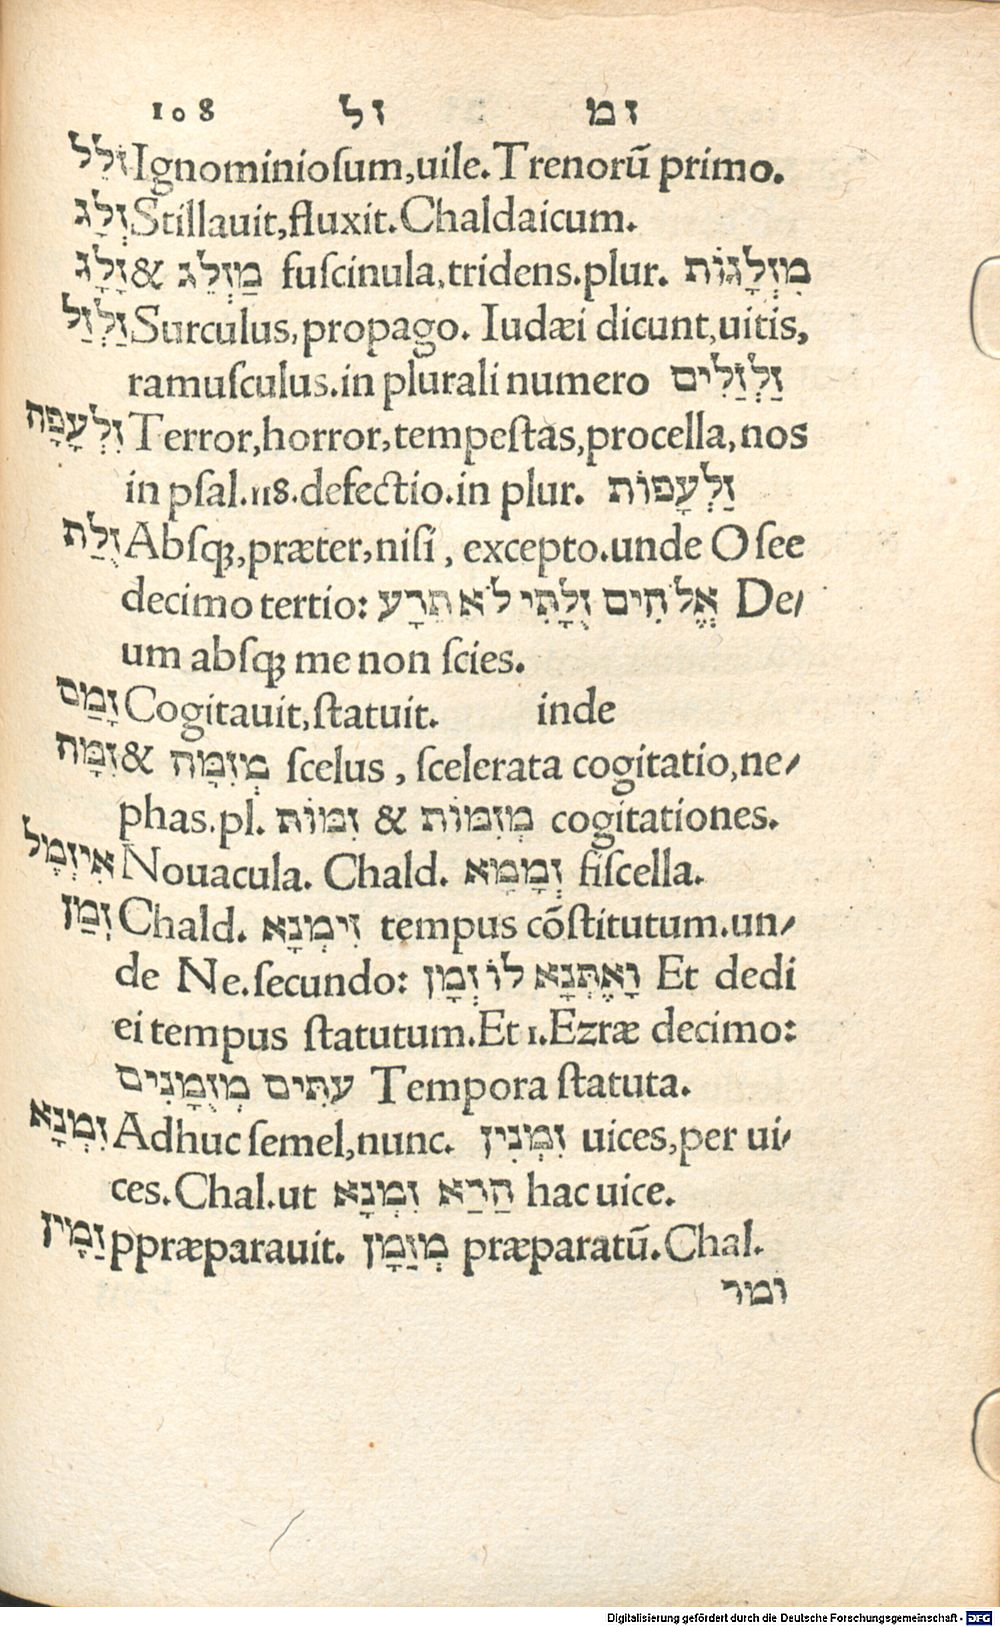 108 זל זמ
זוֹלֵל Ignominiosum,uile.Trenorũ primo.
זְלַג Stillauit,fluxit.Chaldaicum.
זָלָג & מַזְלֵג fuscinula,tridens.plur. מִזְלָגוֹת
זַלְזַל Surculus,propago. Iudæi dicunt,uitis,
ramusculus.in plurali numero זַלְזַלִים
זִלְעָפָה Terror,horror,tempestas,procella,nos
in psal.118.defectio.in plur. זַלְעָפוֹת
זֻלַת Absq;,præter,nisi, excepto.unde Osee
decimo tertio: אֱלֹהִים זֻלָתִי לֹא תֵרָע De/
um absq; me non scies.
זָמַם Cogitauit,statuit. inde
זִמָּה & מְזִמָּה scelus, scelerata cogitatio,ne/
phas.pl. זִמּוֹת & מְזִמּוֹת cogitationes.
אִיזְמֶל Nouacula. Chald. זְמָמָא fiscella.
זְמַן Chald. זִימְנָא tempus cõstitutum.un/
de Ne.secundo: וָאֶתְּנָא לוֹ זְמָן Et dedi
ei tempus statutum.Et 1.Ezræ decimo:
עִתִּים מְזֻמָּנִים Tempora statuta.
זִמְנָא Adhuc semel,nunc. זִמְנִין uices,per ui/
ces.Chal.ut הַדַא זִמְנָא hac uice.
זַמִין ppræparauit. מְזַמָּן præparatũ.Chal.
זמר
Digitalisierung gefördert durch die Deutsche Forschungsgemeinschaft - DFG